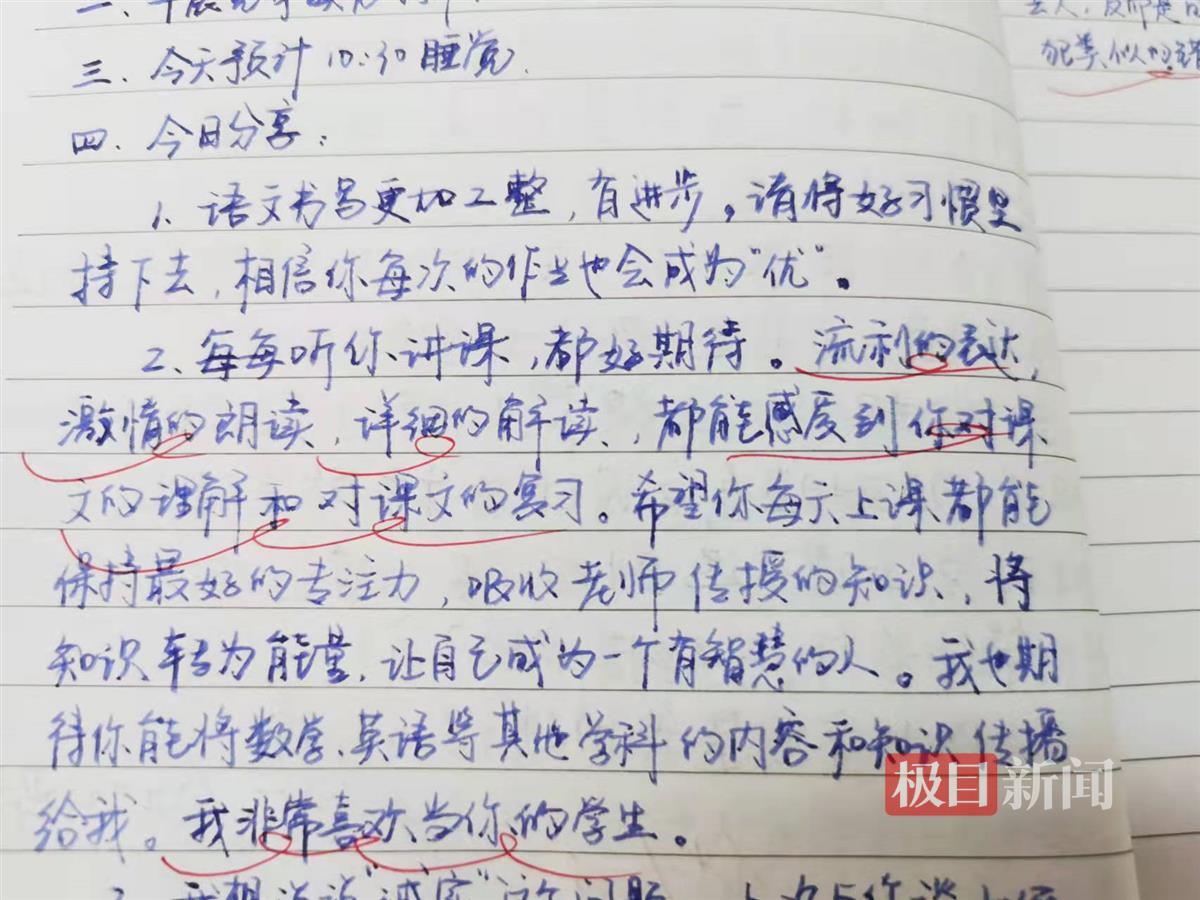 三、今天预计10:30睡觉.
四、今日分享:
1、语文书写更加工整,有进步。请将好习惯坚
持下去,相信你每次的作业也会成为“优”。
2、每每听你讲课,都好期待。流利的表达,
激情的朗读,详细的解读,都能感受到你对课
文的理解和对课文的复习。希望你每天上课都能
保持最好的专注力,吸收老师传授的知识,将
知识转为能量,让自己成为一个有智慧的人。我也期
待你能将数学、英语等其他学科的内容和知识传播
给我。我非常喜欢当你的学生。
犯类似的错
极目新闻